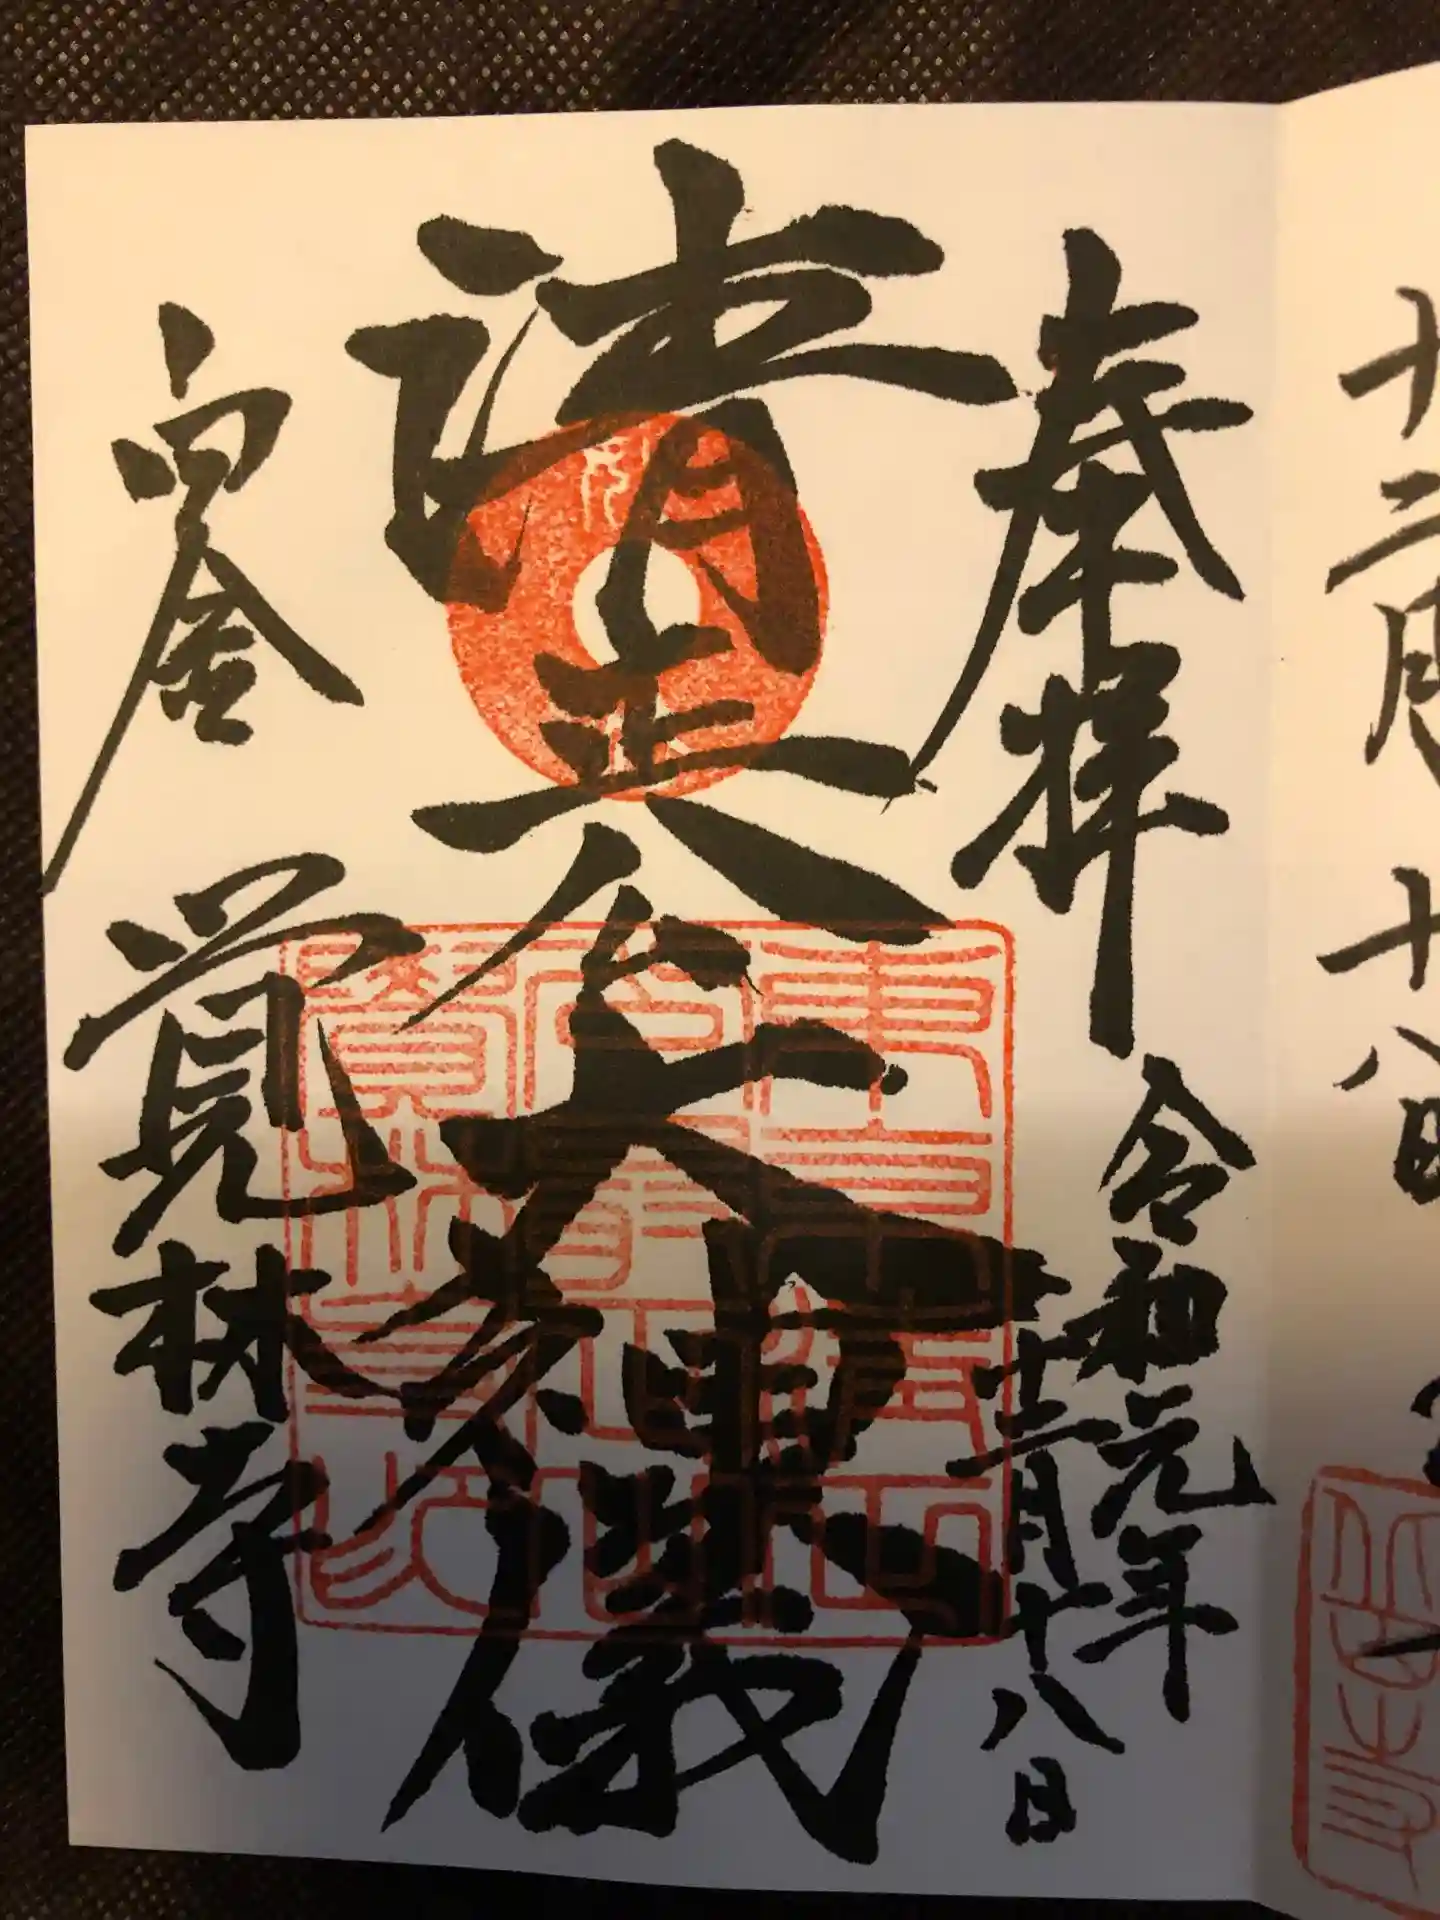 十二月十八日
奉拝
令和元年
十二月十八日
清正公大神儀
白金覚林寺